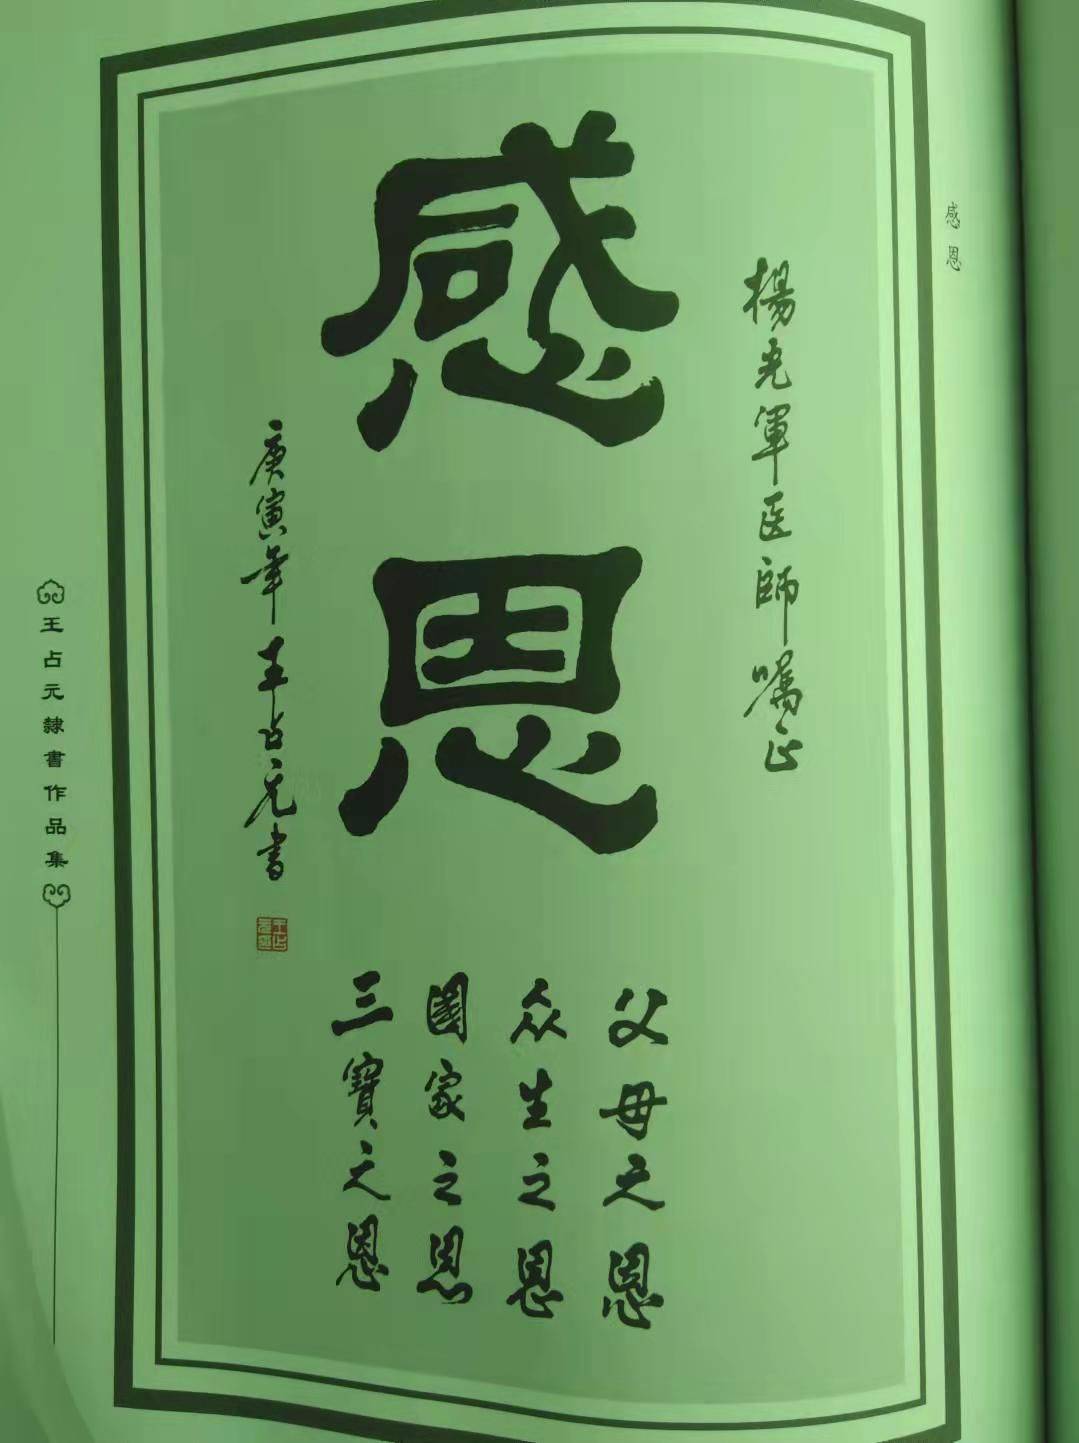 感恩
楊光軍医師嘱正
感恩
父母之恩
众生之恩
國家之恩
三寶之恩
庚寅年王占元書
王占元隸書作品集